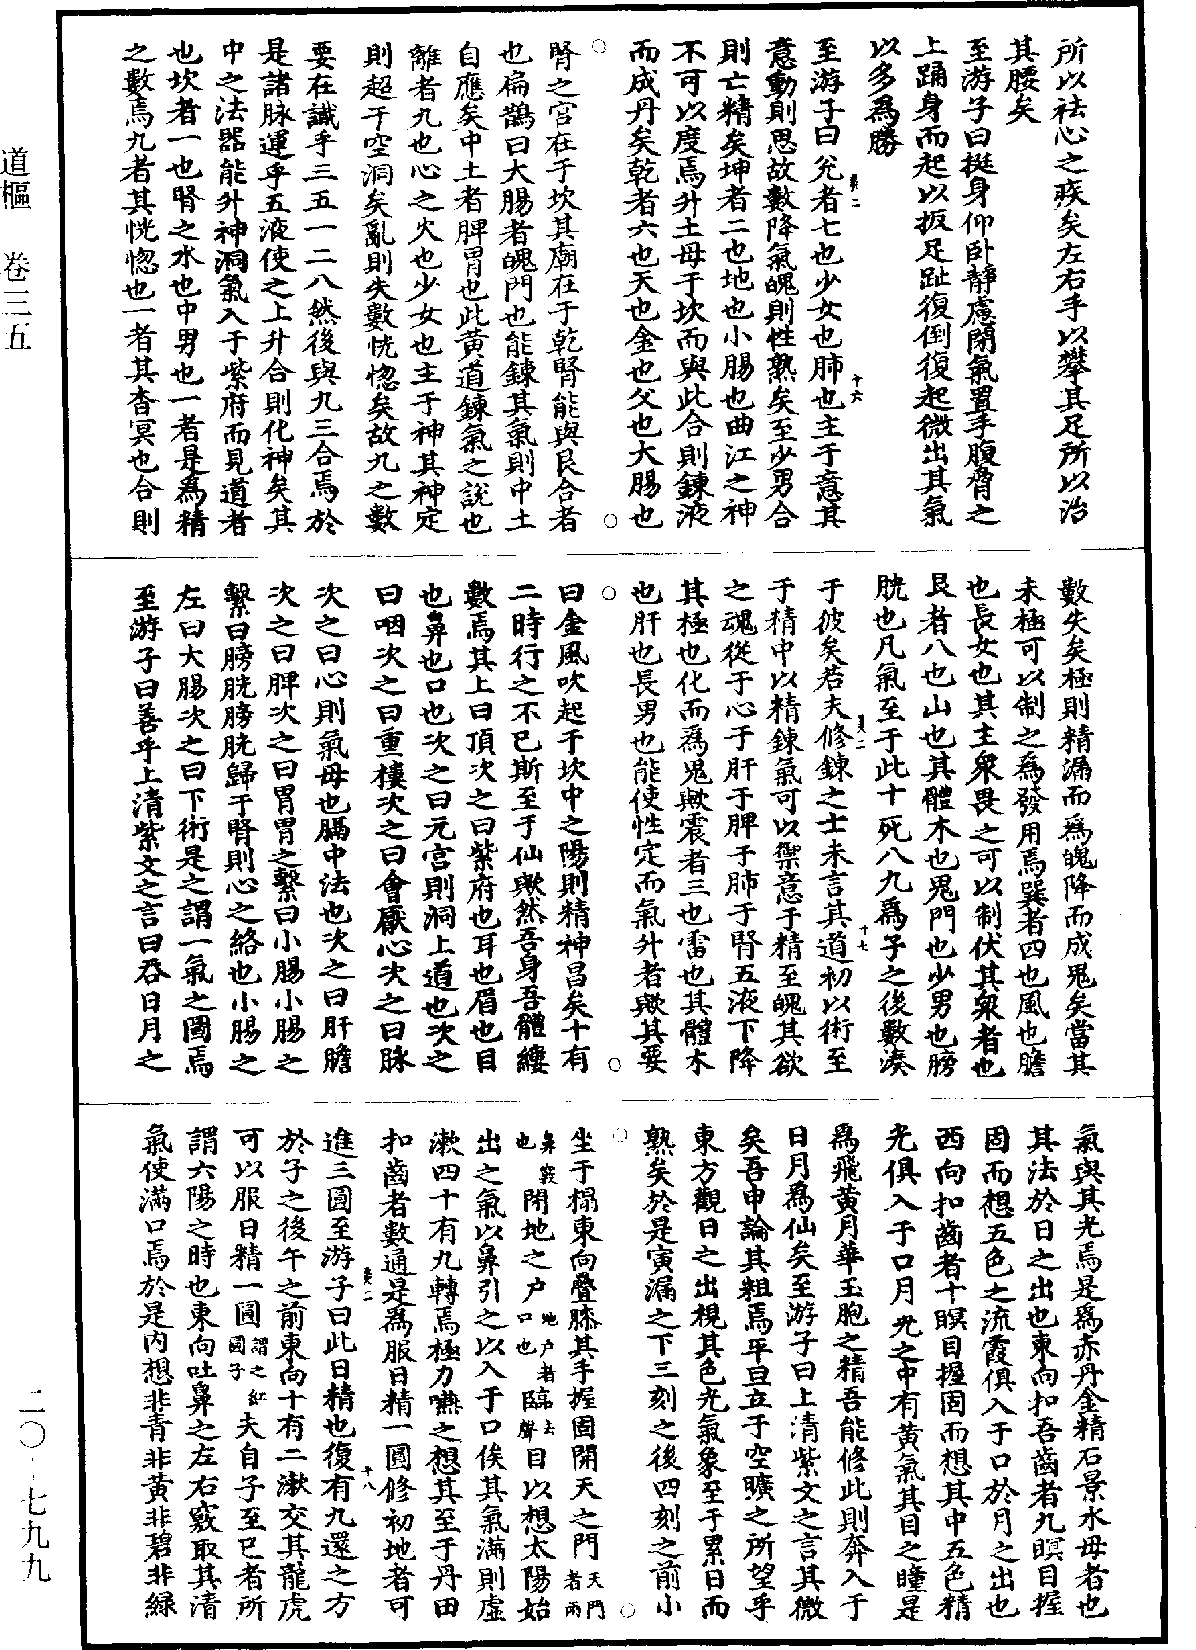 道樞　卷三五
二〇·七九九
所以祛心之疾矣左右手以攀其足所以治
其腰矣
至游子曰挺身仰卧靜慮閉氣置手腹脅之
上踊身而起以扳足趾復倒復起微出其氣
以多為勝
至游子曰兊者七也少女也肺也主于意其
意動則思故數降氣魄則性熟矣至少男合
則亡精矣坤者二也地也小腸也曲江之神
不可以度焉升土母于坎而與此合則鍊液
而成丹矣乾者六也天也金也父也大腸也
十六
腎之宮在于坎其廟在于乾腎能與艮合者
也扁鵲曰大腸者魄門也能鍊其氣則中土
自應矣中土者脾胃也此黃道鍊氣之說也
離者九也心之火也少女也主于神其神定
則超于空洞矣亂則失數恍惚矣故九之數
要在識乎三五一二八然後與九三合焉於
是諸脉運乎五液使之上升合則化神矣其
中之法器能升神洞氣入于紫府而見道者
也坎者一也腎之水也中男也一者是為精
之數焉九者其恍惚也一者其杳冥也合則
數失矣極則精漏而為魄降而成鬼矣當其
未極可以制之為發用焉巽者四也風也膽
也長女也其主衆畏之可以制伏其衆者也
艮者八也山也其體木也鬼門也少男也膀
胱也凡氣至于此十死八九為子之後數湊
于彼矣若夫修鍊之士未言其道初以術至
于精中以精鍊氣可以禦意于精至魄其欲
之魂從于心于肝于脾于肺于腎五液下降
其極也化而為鬼歟震者三也雷也其體木
也肝也長男也能使性定而氣升者歟其要
十七
曰金風吹起于坎中之陽則精神昌矣十有
二時行之不已斯至于仙歟然吾身吾體縷
數焉其上曰頂次之曰紫府也耳也眉也目
也鼻也口也次之曰元宮則洞上道也次之
曰咽次之曰重樓次之曰會厭心次之曰脉
次之曰心則氣母也膈中法也次之曰肝膽
次之曰脾次之曰胃胃之繫曰小腸小腸之
繫曰膀胱膀胱歸于腎則心之絡也小腸之
左曰大腸次之曰下術是之謂一氣之圖焉
至游子曰善乎上清紫文之言曰吞日月之
氣與其光焉是為赤丹金精石景水母者也
其法於日之出也東向扣吾齒者九瞑目握
固而想五色之流霞俱入于口於月之出也
西向扣齒者十瞑目握固而想其中五色精
光俱入于口月光之中有黃氣其目之瞳是
為飛黃月華玉胞之精吾能修此則奔入于
日月為仙矣至游子曰上清紫文之言其微
矣吾申論其粗焉平旦立于空曠之所望乎
東方觀日之出視其色光氣象至于累日而
熟矣於是寅漏之下三刻之後四刻之前小
坐于榻東向疊膝其手握固開天之門天門者兩
鼻竅也閉地之户地户者口也臨去聲目以想太陽始
出之氣以鼻引之以入于口俟其氣滿則虛
漱四十有九轉焉極力嚥之想其至于丹田
扣齒者數通是為服日精一圓修初地者可
十八
進三圓至游子曰此日精也復有九還之方
於子之後午之前東向十有二漱交其龍虎
可以服日精一圓謂之紅圓子夫自子至巳者所
謂六陽之時也東向吐鼻之左右竅取其清
氣使滿口焉於是內想非青非黃非碧非綠